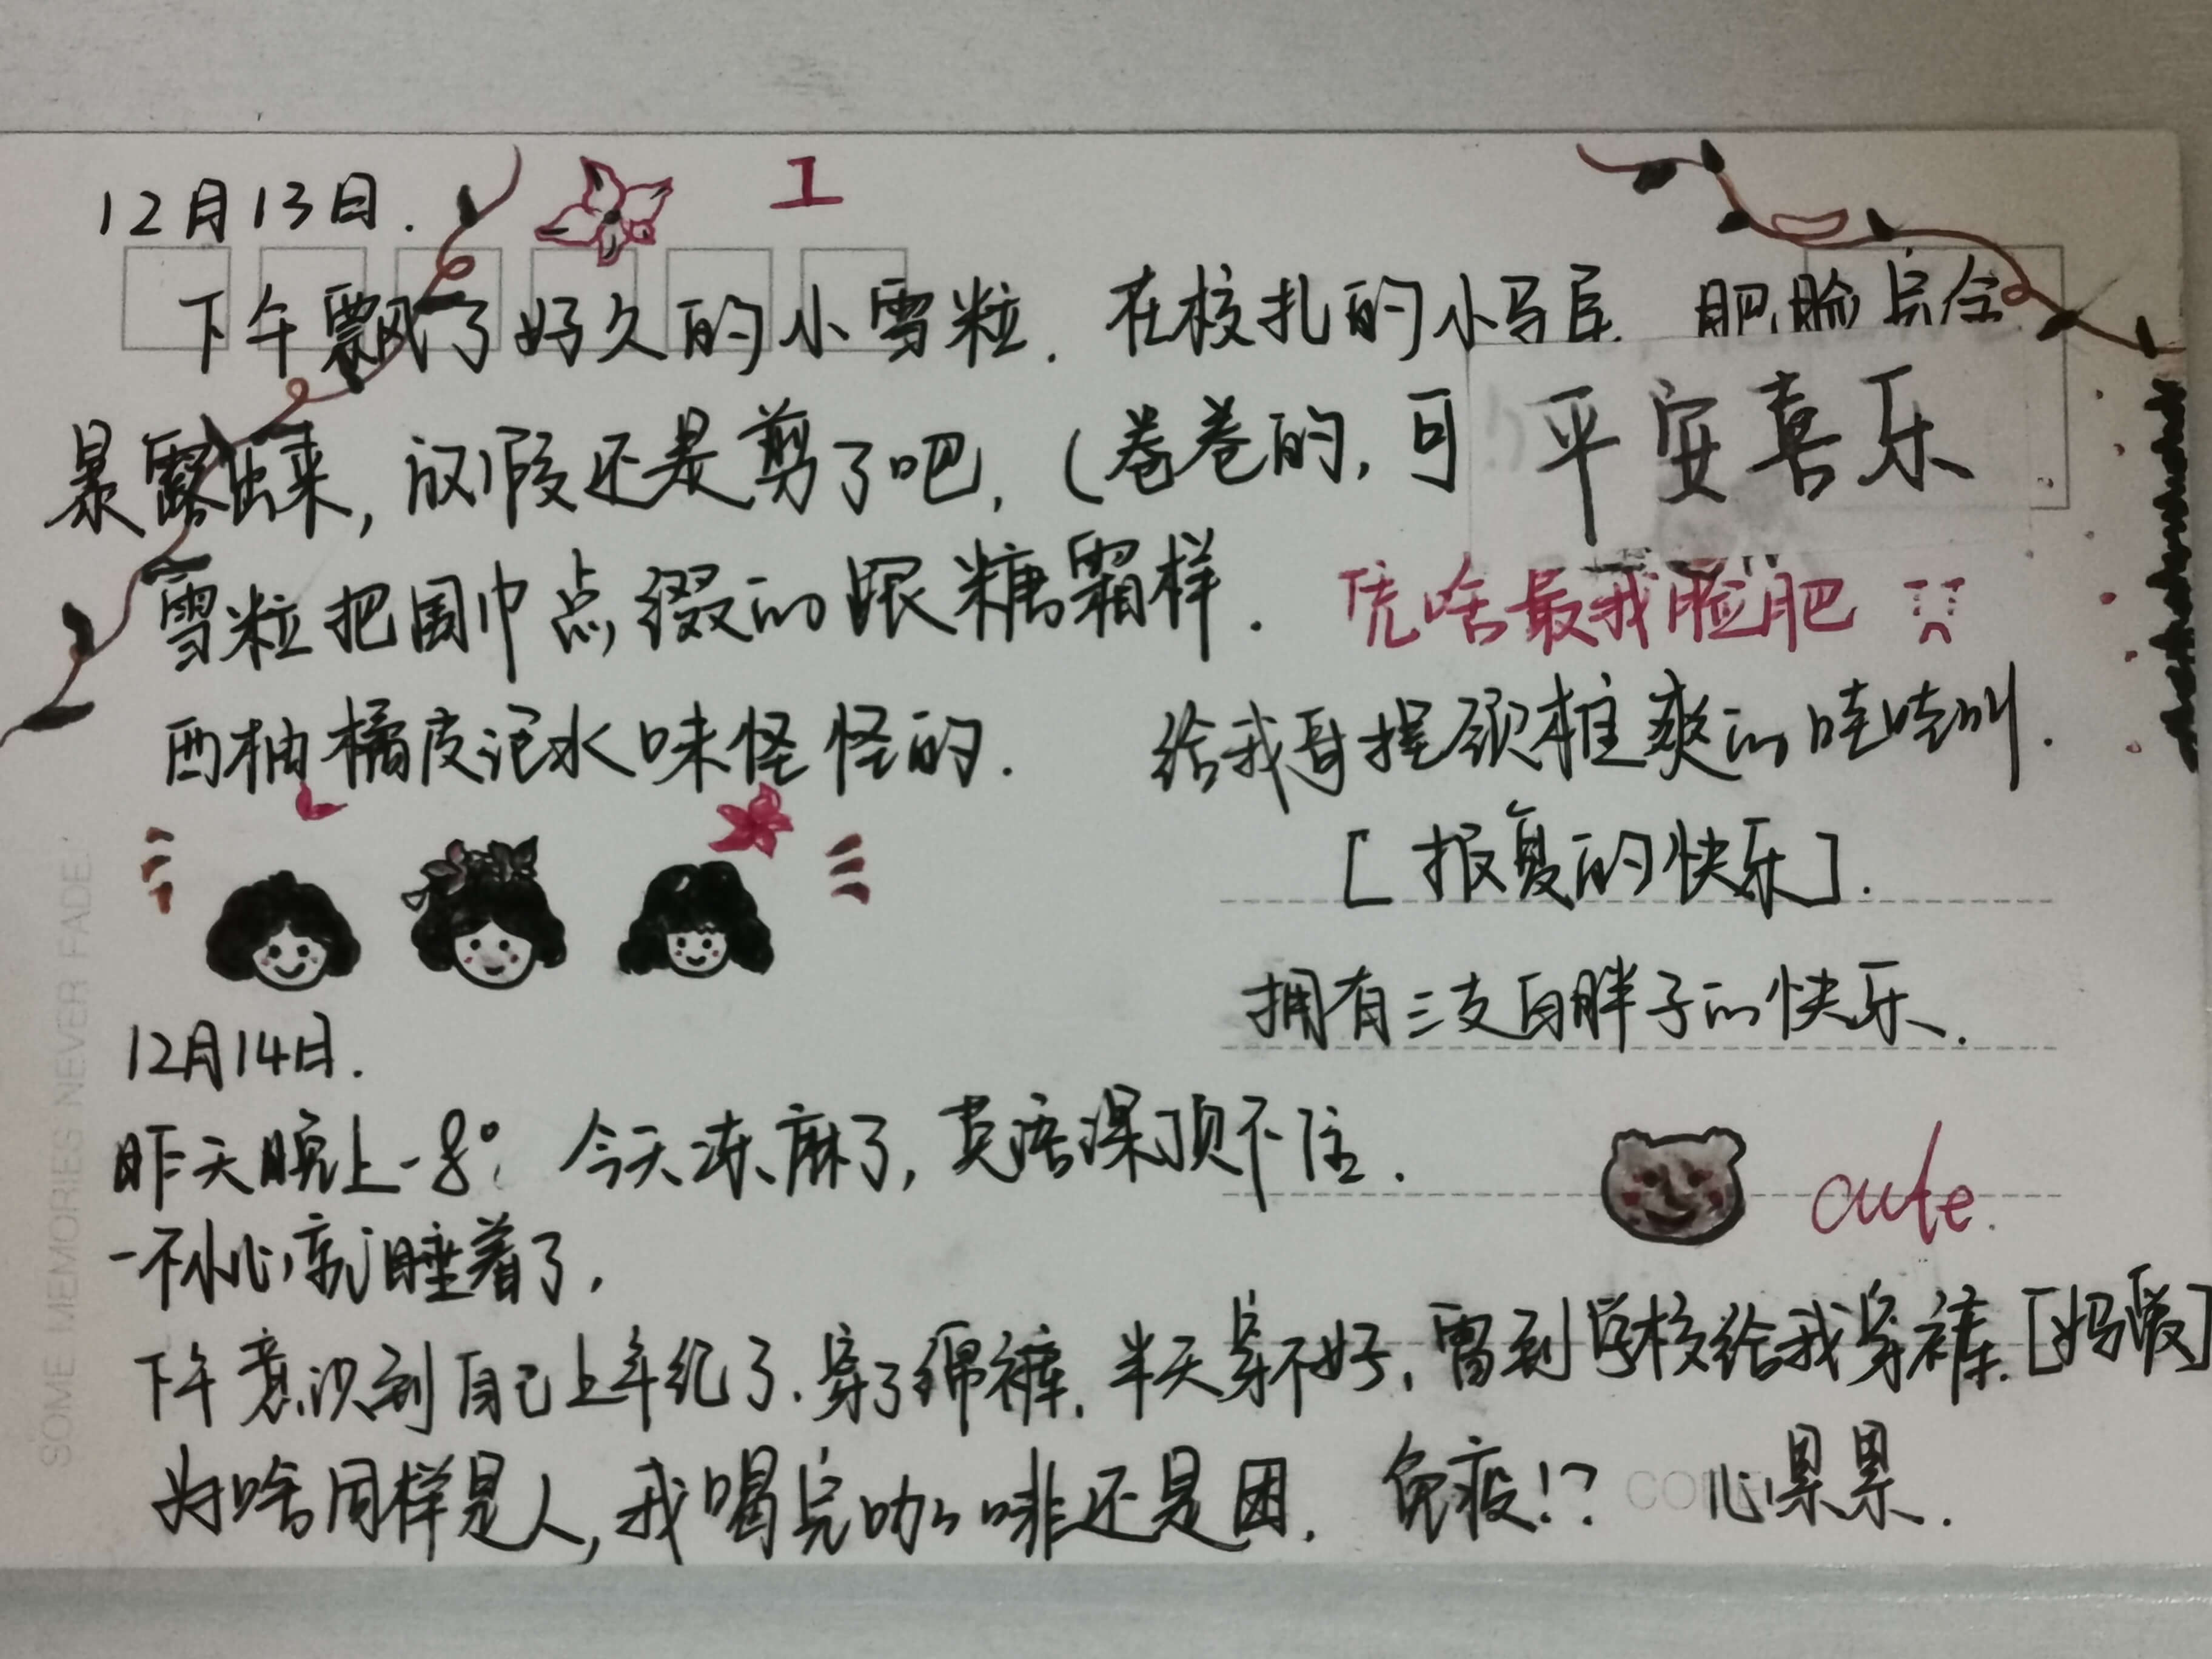 12月13日.
1
下午飘了好久的小雪粒. 在校扎的小马尾. 肥脸完全
暴露出来, 放假还是剪了吧, (卷卷的, 可
平安喜乐
雪粒把围巾点缀的跟糖霜样.
凭啥最我脸肥
西柚橘皮泡水味怪怪的.
给我哥捏颈椎爽的哇哇叫.
[报复的快乐].
拥有三支白胖子的快乐.
12月14日.
昨天晚上-8° 今天冻麻了, 英语课顶不住.
cute.
一不小心就睡着了,
下午意识到自己上年纪了. 穿了绵裤. 半天穿不好, 雷到学校给我穿裤. [妈暖]
为啥同样是人, 我喝完咖啡还是困. 免疫!? 心累累.
SOME MEMORIES NEVER FADE.